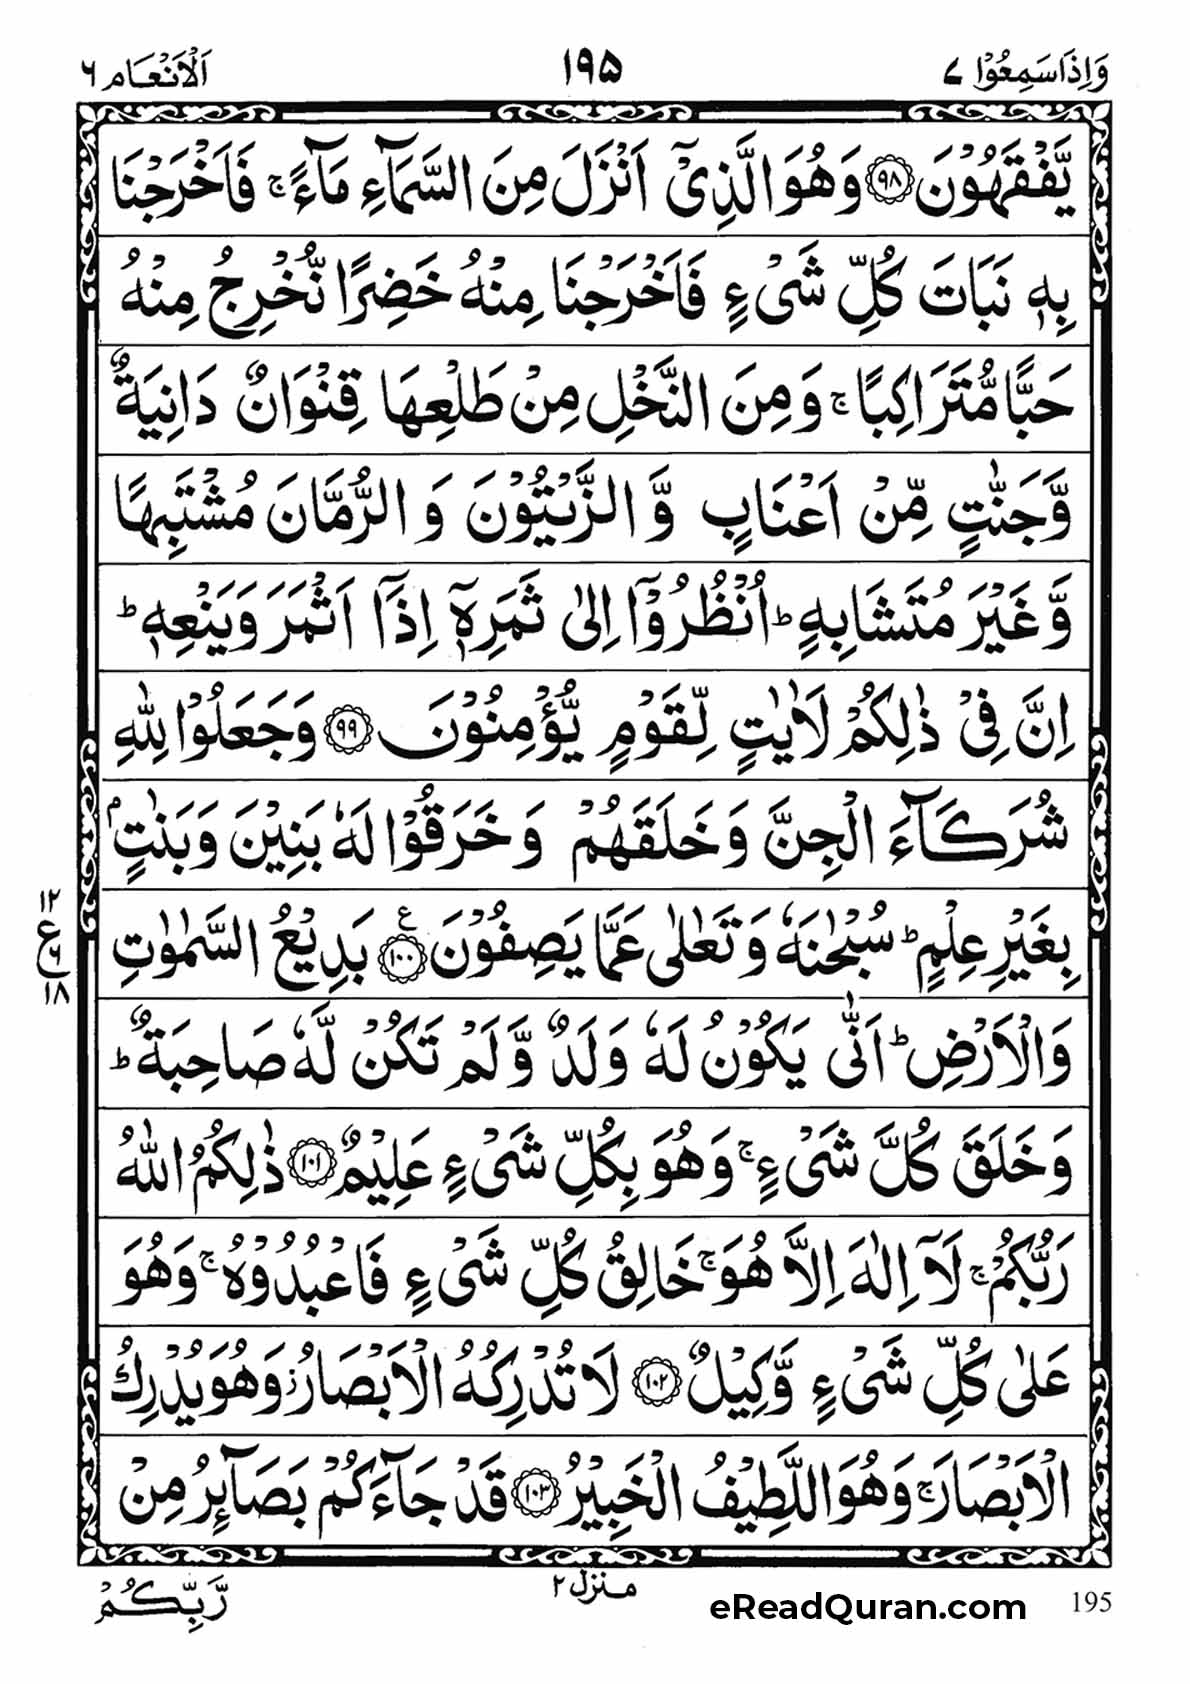 وَاِذَاسَمِعُوْا ۷ ۱۹۵ اَلْاَنْعَام ٦
يَّفْقَهُوْنَ ﴿۹۸﴾ وَهُوَ الَّذِىْۤ اَنْزَلَ مِنَ السَّمَآءِ مَآءً ۚ فَاَخْرَجْنَا
بِهٖ نَبَاتَ كُلِّ شَىْءٍ فَاَخْرَجْنَا مِنْهُ خَضِرًا نُّخْرِجُ مِنْهُ
حَبًّا مُّتَرَاكِبًا ۚ وَمِنَ النَّخْلِ مِنْ طَلْعِهَا قِنْوَانٌ دَانِيَةٌ
وَّجَنّٰتٍ مِّنْ اَعْنَابٍ وَّ الزَّيْتُوْنَ وَ الرُّمَّانَ مُشْتَبِهًا
وَّ غَيْرَ مُتَشَابِهٍ ؕ اُنْظُرُوْۤا اِلٰى ثَمَرِهٖۤ اِذَاۤ اَثْمَرَ وَيَنْعِهٖ ؕ
اِنَّ فِىْ ذٰلِكُمْ لَاٰيٰتٍ لِّقَوْمٍ يُّؤْمِنُوْنَ ﴿۹۹﴾ وَجَعَلُوْا لِلّٰهِ
شُرَكَآءَ الْجِنَّ وَخَلَقَهُمْ وَ خَرَقُوْا لَهٗ بَنِيْنَ وَبَنٰتٍۢ
بِغَيْرِ عِلْمٍ ؕ سُبْحٰنَهٗ وَ تَعٰلٰى عَمَّا يَصِفُوْنَ ﴿۱۰۰﴾ ع بَدِيْعُ السَّمٰوٰتِ
۱۲ ع ۹ ۱۸
وَالْاَرْضِ ؕ اَنّٰى يَكُوْنُ لَهٗ وَلَدٌ وَّ لَمْ تَكُنْ لَّهٗ صَاحِبَةٌ ؕ
وَ خَلَقَ كُلَّ شَىْءٍ ۚ وَهُوَ بِكُلِّ شَىْءٍ عَلِيْمٌ ﴿۱۰۱﴾ ذٰلِكُمُ اللّٰهُ
رَبُّكُمْ ۚ لَاۤ اِلٰهَ اِلَّا هُوَ ۚ خَالِقُ كُلِّ شَىْءٍ فَاعْبُدُوْهُ ۚ وَهُوَ
عَلٰى كُلِّ شَىْءٍ وَّكِيْلٌ ﴿۱۰۲﴾ لَا تُدْرِكُهُ الْاَبْصَارُ ز وَهُوَ يُدْرِكُ
الْاَبْصَارَ ۚ وَهُوَ اللَّطِيْفُ الْخَبِيْرُ ﴿۱۰۳﴾ قَدْ جَآءَكُمْ بَصَآئِرُ مِنْ
منزل ۲
رَّبِّكُمْ
eReadQuran.com 195